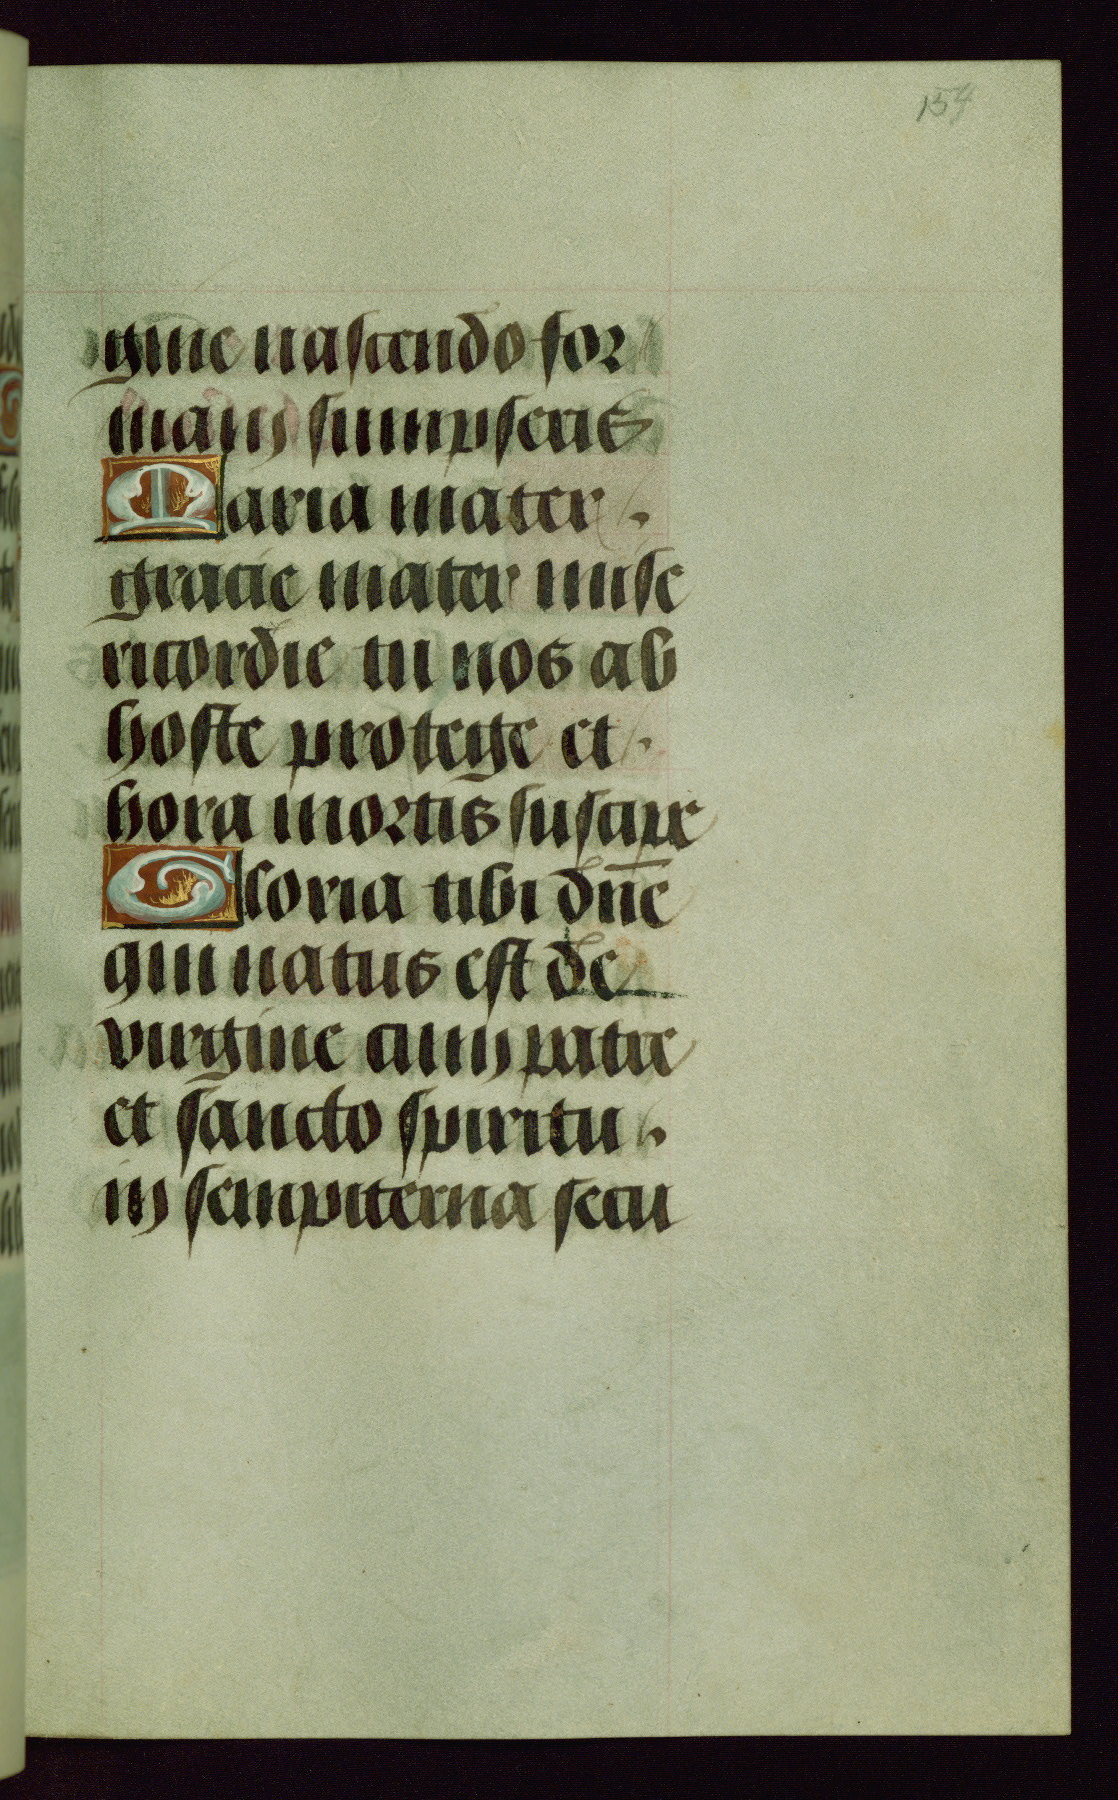 154
gine nascendo for
mam sumpseris
Maria mater .
gracie mater mise
ricordie tu nos ab
hoste protege et .
hora mortis suscipe
Gloria tibi dn̄e
qui natus est de
virgine cum patre
et sancto spiritu .
in sempiterna secu